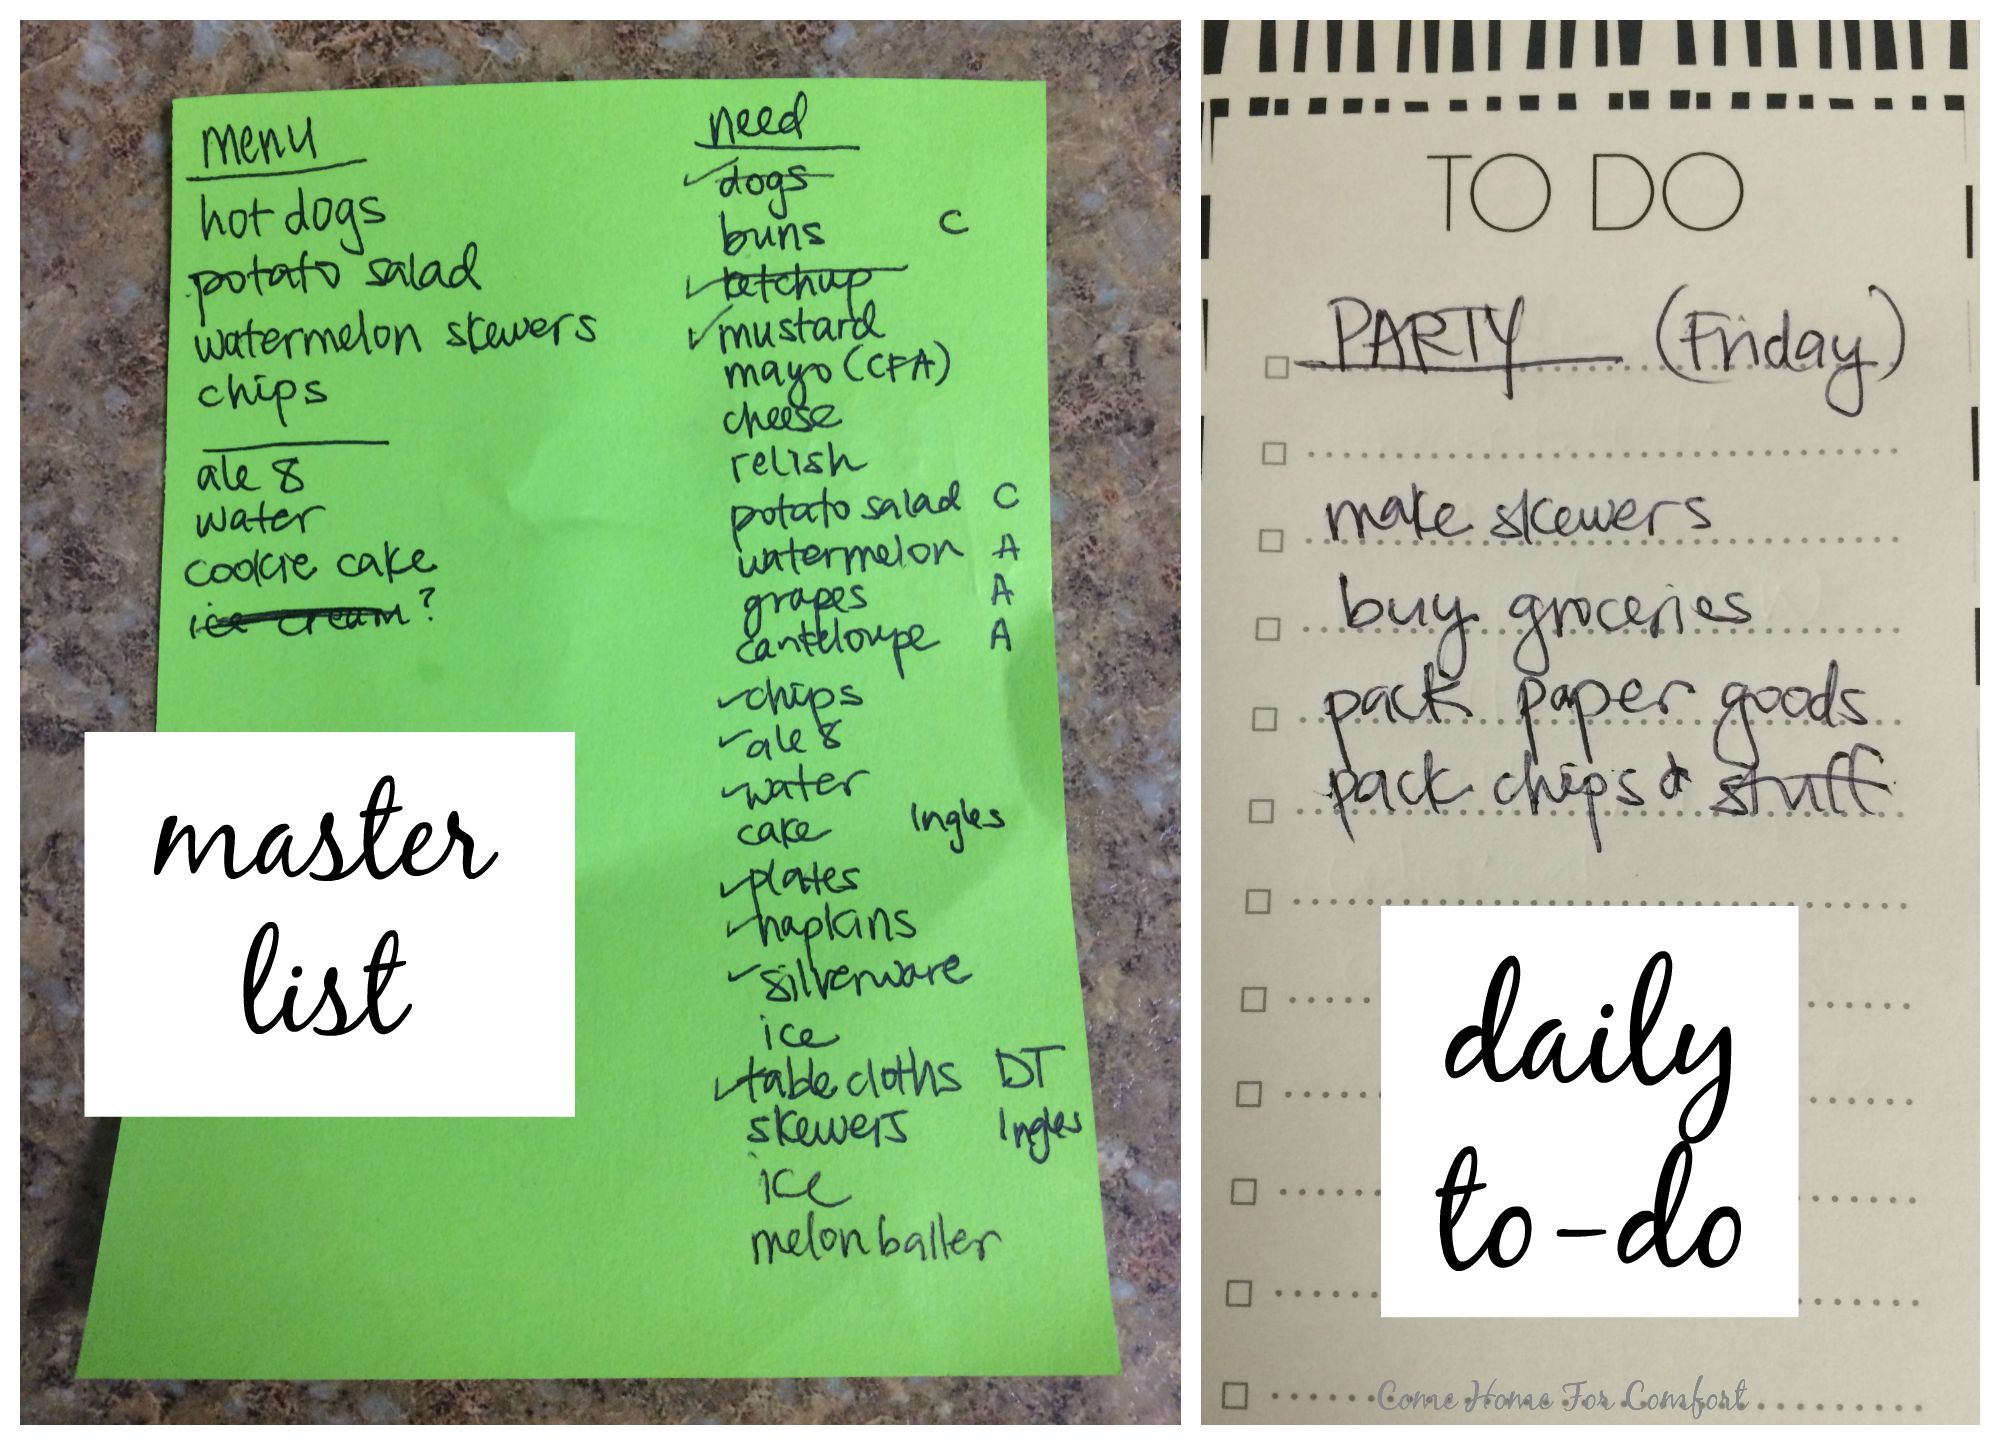 menu
hot dogs
potato salad
watermelon skewers
chips
ale 8
water
cookie cake
ice cream?
need
✓ dogs
buns C
✓ ketchup
✓ mustard
mayo (CFA)
cheese
relish
potato salad C
watermelon A
grapes A
canteloupe A
✓ chips
✓ ale 8
✓ water
cake Ingles
✓ plates
✓ napkins
✓ silverware
ice
✓ table cloths DT
skewers Ingles
ice
melon baller
master
list
TO DO
PARTY (Friday)
make skewers
buy groceries
pack paper goods
pack chips & stuff
daily
to-do
Come Home For Comfort